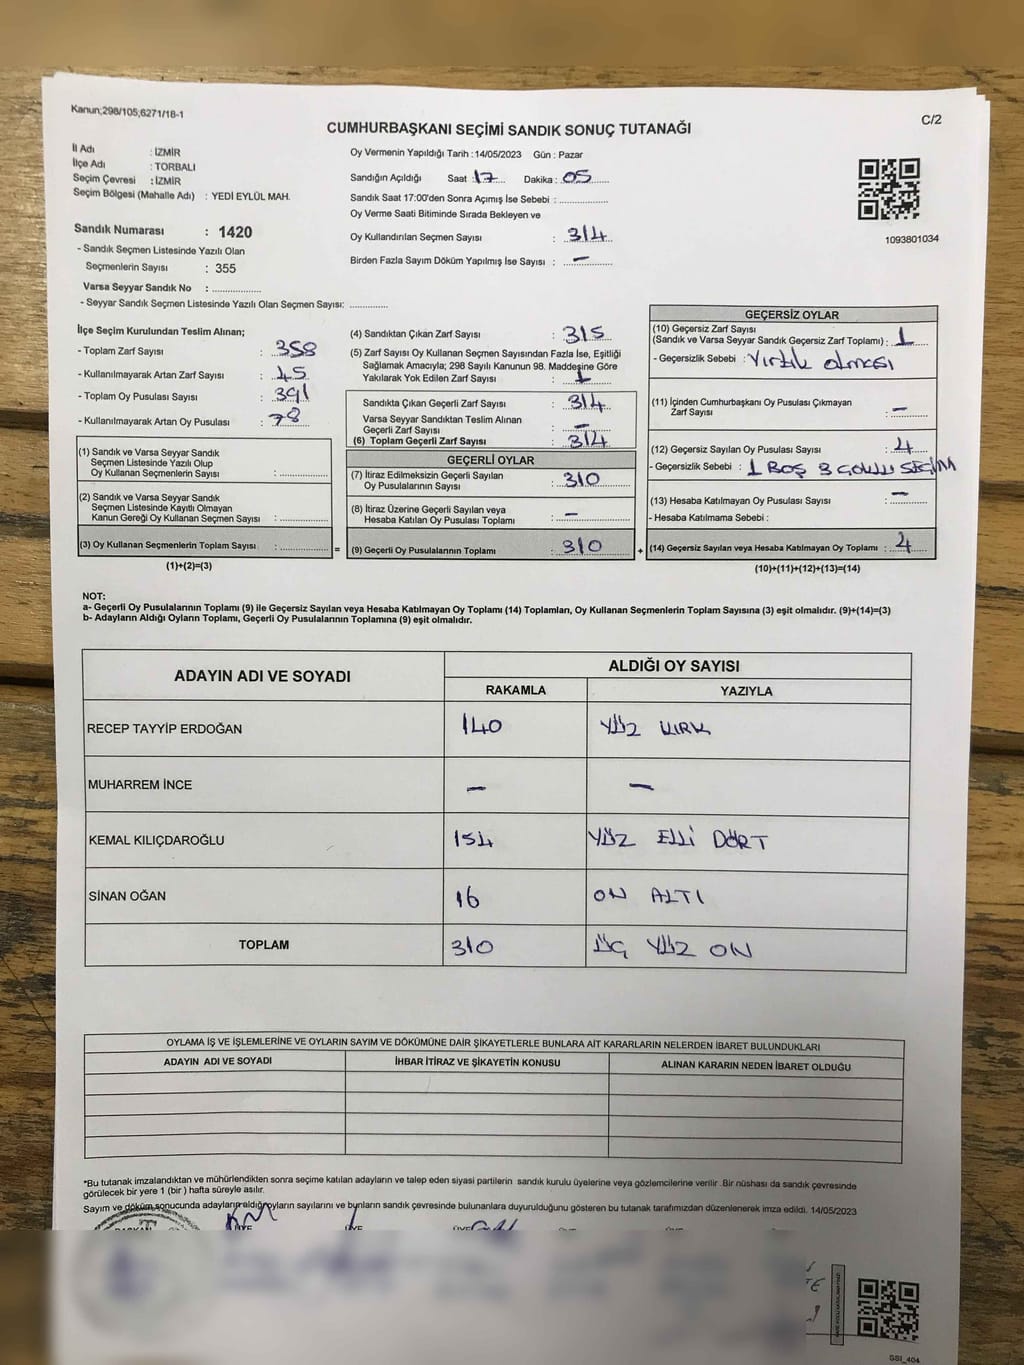 Kanun;298/105;6271/18-1
C/2
CUMHURBAŞKANI SEÇİMİ SANDIK SONUÇ TUTANAĞI
İl Adı : İZMİR
İlçe Adı : TORBALI
Seçim Çevresi : İZMİR
Seçim Bölgesi (Mahalle Adı) : YEDİ EYLÜL MAH.
Sandık Numarası : 1420
- Sandık Seçmen Listesinde Yazılı Olan
Seçmenlerin Sayısı : 355
Varsa Seyyar Sandık No : ............
- Seyyar Sandık Seçmen Listesinde Yazılı Olan Seçmen Sayısı: ............
Oy Vermenin Yapıldığı Tarih : 14/05/2023 Gün : Pazar
Sandığın Açıldığı Saat : 17 Dakika : 05
Sandık Saat 17:00'den Sonra Açımış İse Sebebi : ............
Oy Verme Saati Bitiminde Sırada Bekleyen ve
Oy Kullandırılan Seçmen Sayısı : 314
Birden Fazla Sayım Döküm Yapılmış İse Sayısı : –
1093801034
İlçe Seçim Kurulundan Teslim Alınan;
- Toplam Zarf Sayısı : 358
- Kullanılmayarak Artan Zarf Sayısı : 45
- Toplam Oy Pusulası Sayısı : 391
- Kullanılmayarak Artan Oy Pusulası : 78
(1) Sandık ve Varsa Seyyar Sandık
Seçmen Listesinde Yazılı Olup
Oy Kullanan Seçmenlerin Sayısı : ............
(2) Sandık ve Varsa Seyyar Sandık
Seçmen Listesinde Kayıtlı Olmayan
Kanun Gereği Oy Kullanan Seçmen Sayısı : ............
(3) Oy Kullanan Seçmenlerin Toplam Sayısı : ............
(1)+(2)=(3)
(4) Sandıktan Çıkan Zarf Sayısı : 315
(5) Zarf Sayısı Oy Kullanan Seçmen Sayısından Fazla İse, Eşitliği
Sağlamak Amacıyla; 298 Sayılı Kanunun 98. Maddesine Göre
Yakılarak Yok Edilen Zarf Sayısı : 1
Sandıkta Çıkan Geçerli Zarf Sayısı : 314
Varsa Seyyar Sandıktan Teslim Alınan
Geçerli Zarf Sayısı : –
(6) Toplam Geçerli Zarf Sayısı : 314
GEÇERLİ OYLAR
(7) İtiraz Edilmeksizin Geçerli Sayılan
Oy Pusulalarının Sayısı : 310
(8) İtiraz Üzerine Geçerli Sayılan veya
Hesaba Katılan Oy Pusulası Toplamı : –
= (9) Geçerli Oy Pusulalarının Toplamı : 310 +
GEÇERSİZ OYLAR
(10) Geçersiz Zarf Sayısı
(Sandık ve Varsa Seyyar Sandık Geçersiz Zarf Toplamı) : 1
- Geçersizlik Sebebi : Yırtık olması
(11) İçinden Cumhurbaşkanı Oy Pusulası Çıkmayan
Zarf Sayısı : –
(12) Geçersiz Sayılan Oy Pusulası Sayısı : 4
- Geçersizlik Sebebi : 1 BOŞ 3 ÇOKLU SEÇİM
(13) Hesaba Katılmayan Oy Pusulası Sayısı : –
- Hesaba Katılmama Sebebi :
(14) Geçersiz Sayılan veya Hesaba Katılmayan Oy Toplamı : 4
(10)+(11)+(12)+(13)=(14)
NOT:
a- Geçerli Oy Pusulalarının Toplamı (9) ile Geçersiz Sayılan veya Hesaba Katılmayan Oy Toplamı (14) Toplamları, Oy Kullanan Seçmenlerin Toplam Sayısına (3) eşit olmalıdır. (9)+(14)=(3)
b- Adayların Aldığı Oyların Toplamı, Geçerli Oy Pusulalarının Toplamına (9) eşit olmalıdır.
ADAYIN ADI VE SOYADI
ALDIĞI OY SAYISI
RAKAMLA YAZIYLA
RECEP TAYYİP ERDOĞAN 140 YÜZ KIRK
MUHARREM İNCE – –
KEMAL KILIÇDAROĞLU 154 YÜZ ELLİ DÖRT
SİNAN OĞAN 16 ON ALTI
TOPLAM 310 ÜÇ YÜZ ON
OYLAMA İŞ VE İŞLEMLERİNE VE OYLARIN SAYIM VE DÖKÜMÜNE DAİR ŞİKAYETLERLE BUNLARA AİT KARARLARIN NELERDEN İBARET BULUNDUKLARI
ADAYIN ADI VE SOYADI İHBAR İTİRAZ VE ŞİKAYETİN KONUSU ALINAN KARARIN NEDEN İBARET OLDUĞU
*Bu tutanak imzalandıktan ve mühürlendikten sonra seçime katılan adayların ve talep eden siyasi partilerin sandık kurulu üyelerine veya gözlemcilerine verilir .Bir nüshası da sandık çevresinde
görülecek bir yere 1 (bir ) hafta süreyle asılır.
Sayım ve döküm sonucunda adayların aldığı oyların sayılarını ve bunların sandık çevresinde bulunanlara duyurulduğunu gösteren bu tutanak tarafımızdan düzenlenerek imza edildi. 14/05/2023
SSI_404